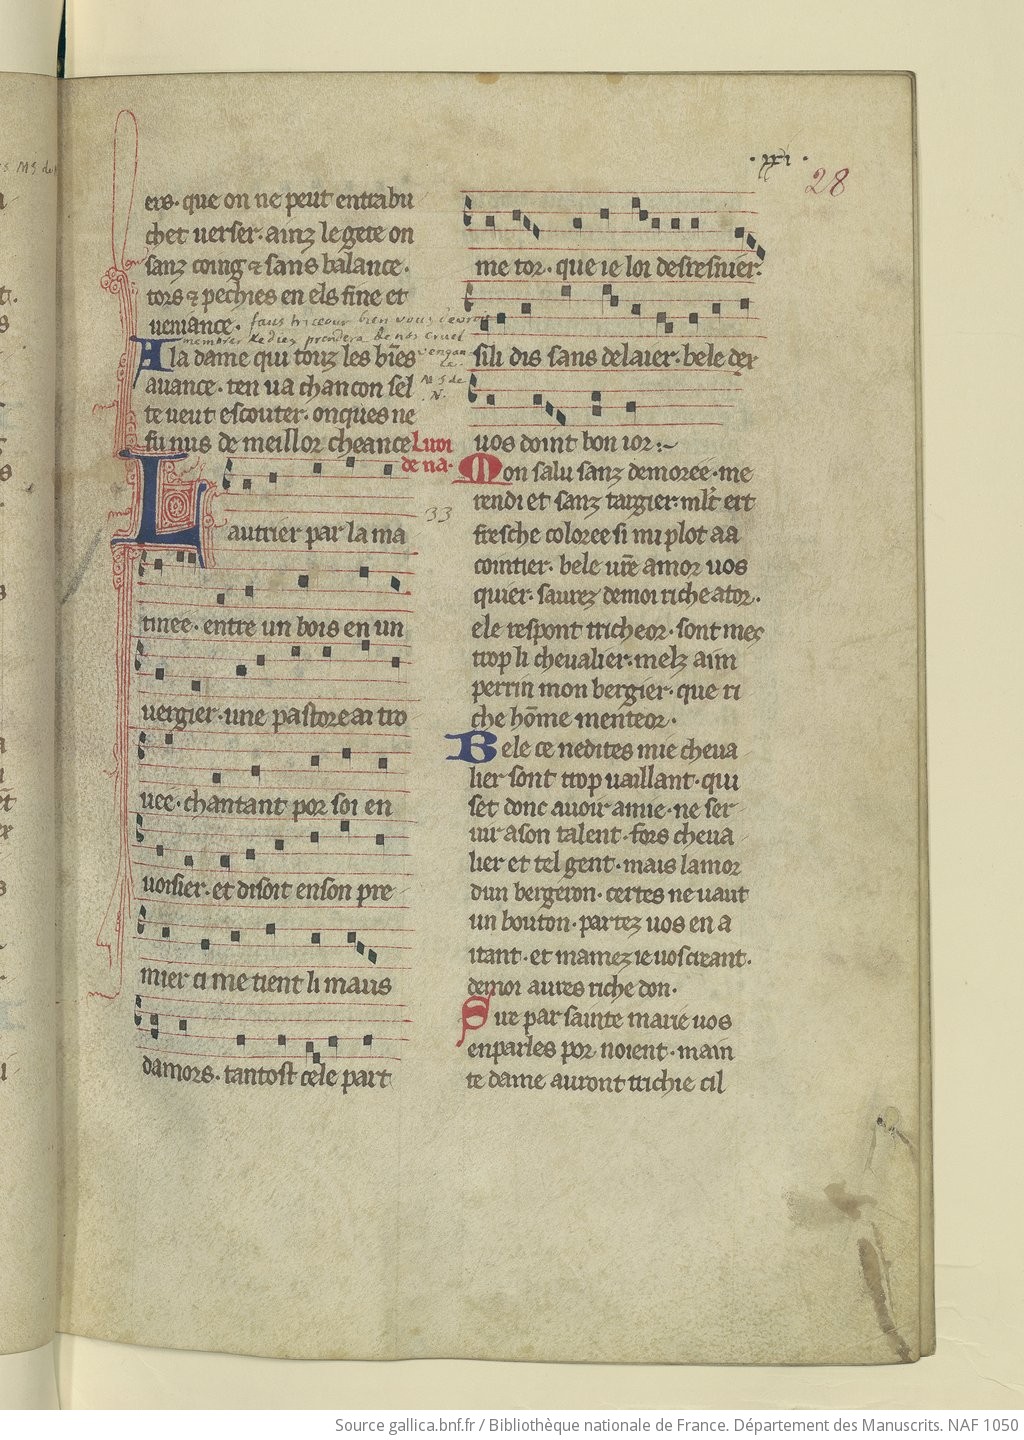 .xxi.
28
ers. que on ne peut entrabu
chet uerser. ainz le gete on
sanz coing ⁊ sans balance.
tors ⁊ pechies en els fine et
ueniance. faus triceour bien vous devroit
membrer ke diex prendera de nos cruel
vengance
Ms de N.
A la dame qui touz les bīes
auance. ten ua chancon sel
te ueut escouter. onques ne
fu nus de meillor cheance
Lautrier par la ma
33
tinee. entre un bois en un
uergier. une pastore ai tro
uee. chantant por soi en
uoisier. et disoit en son pre
mier ci me tient li maus
damors. tantost cele part
me tor. que ie loi desresnier.
si li dis sans delaier. bele dex
uos doint bon ior
Mon salu sanz demoree. me
rendi et sanz targier. ml't ert
fresche coloree si mi plot aa
cointier. bele ur̄e amor uos
quier. saurez de moi riche ator.
ele respont tricheor. sont mes
trop li cheualier. melz aim
perrin mon bergier. que ri
che hōme menteor.
Bele ce ne dites mie cheua
lier sont trop uaillant. qui
set donc auoir amie. ne ser
uir a son talent. fors cheua
lier et tel gent. mais lamor
dun bergeron. certes ne uaut
un bouton. partez uos en a
itant. et mamez ie uos creant.
de moi aures riche don.
Sire par sainte marie uos
en parles por noient. main
te dame auront trichie cil
Source gallica.bnf.fr / Bibliothèque nationale de France. Département des Manuscrits. NAF 1050